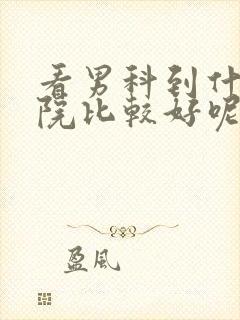 看男科到什
院比较好呢
盈风